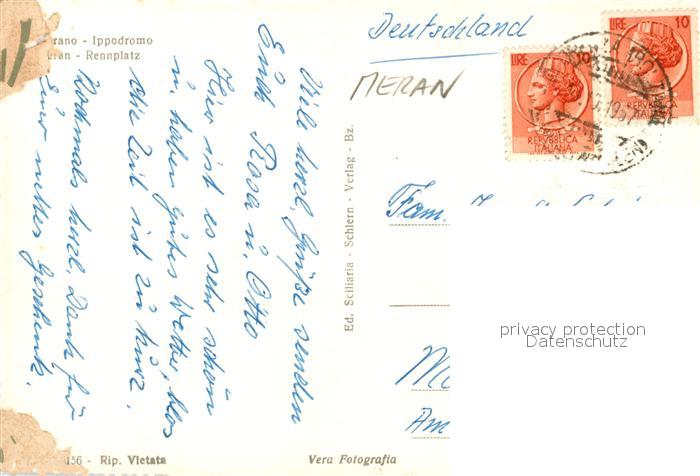 rano - Ippodromo
ran - Rennplatz
Viele herzl. Grüße senden
Euch Rosa u. Otto
Hier ist es sehr schön
u. haben gutes Wetter, blos
die Zeit ist zu kurz.
Nochmals herzl. Dank für
Euer nettes Geschenk.
156 - Rip. Vietata
Vera Fotografia
Ed. Sciliaria - Schlern - Verlag - Bz.
Deutschland
MERAN
LIRE 10
REPVBBLICA
ITALIANA
LIRE 10
REPVBBLICA
ITALIANA
Fam.
Am
privacy protection
Datenschutz